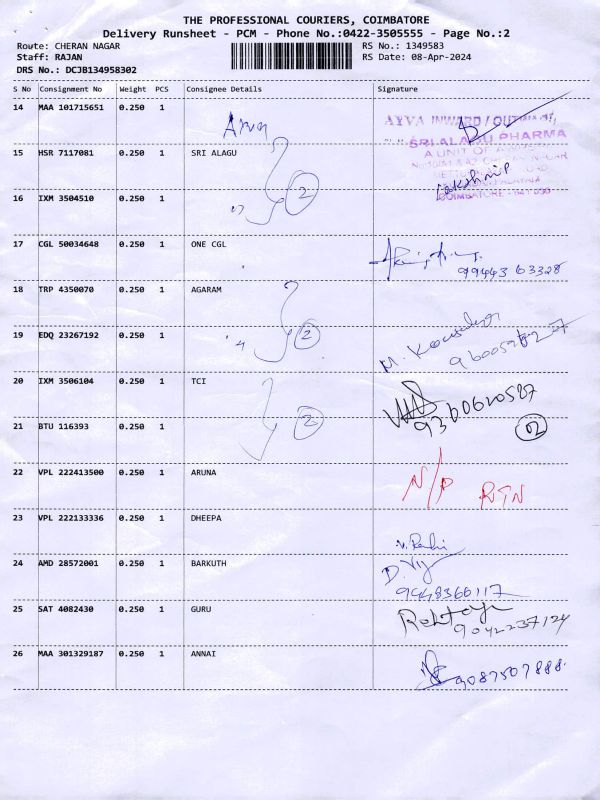 THE PROFESSIONAL COURIERS, COIMBATORE
Delivery Runsheet - PCM - Phone No.:0422-3505555 - Page No.:2
Route: CHERAN NAGAR RS No.: 1349583
Staff: RAJAN RS Date: 08-Apr-2024
DRS No.: DCJB134958302
S No Consignment No Weight PCS Consignee Details Signature
14 MAA 101715651 0.250 1
SRI ALAGU PHARMA
A UNIT OF
COIMBATORE - 641 030
15 HSR 7117081 0.250 1 SRI ALAGU
2
16 IXM 3504510 0.250 1
17 CGL 50034648 0.250 1 ONE CGL
99443 63328
18 TRP 4350070 0.250 1 AGARAM
2
19 EDQ 23267192 0.250 1
20 IXM 3506104 0.250 1 TCI
9360620587
2
21 BTU 116393 0.250 1
02
22 VPL 222413500 0.250 1 ARUNA
N/P RTN
23 VPL 222133336 0.250 1 DHEEPA
24 AMD 28572001 0.250 1 BARKUTH
9448366117
25 SAT 4082430 0.250 1 GURU
9042237124
26 MAA 301329187 0.250 1 ANNAI
9087507888.